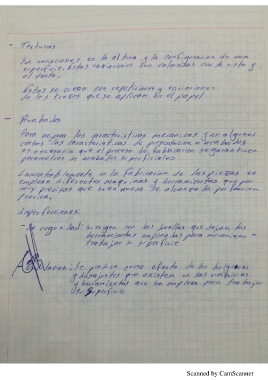 - Texturas
Son variaciones en la altura y la configuración de una
superficie. Estas variaciones son valoradas con la vista y
el tacto.
Estas se crean con repeticiones y variaciones
de los trazos que se aplican en el papel
- Acabados
Para mejorar las características mecánicas y en algunos
casos las características de
es necesario que el proceso de fabricación se
parametros de acabados superficiales
la fabricación de las piezas se
emplean diferentes maquinas y herramientas que por
muy precisas que sean nunca se alcanza la perfección
teorica.
- Se rugosidad: su origen son las huellas que dejan las
herramientas empleadas para mecanizar
trabajar su superficie
Se produce como efecto de las holguras
y desajustes que existen en las maquinas
y herramientas que se emplean para trabajar
superficie
Scanned by CamScanner